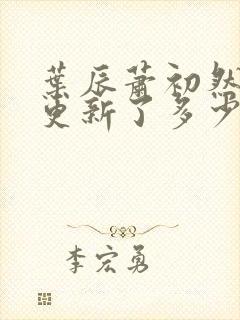 葉辰蕭初然
更新了多少
李宏勇